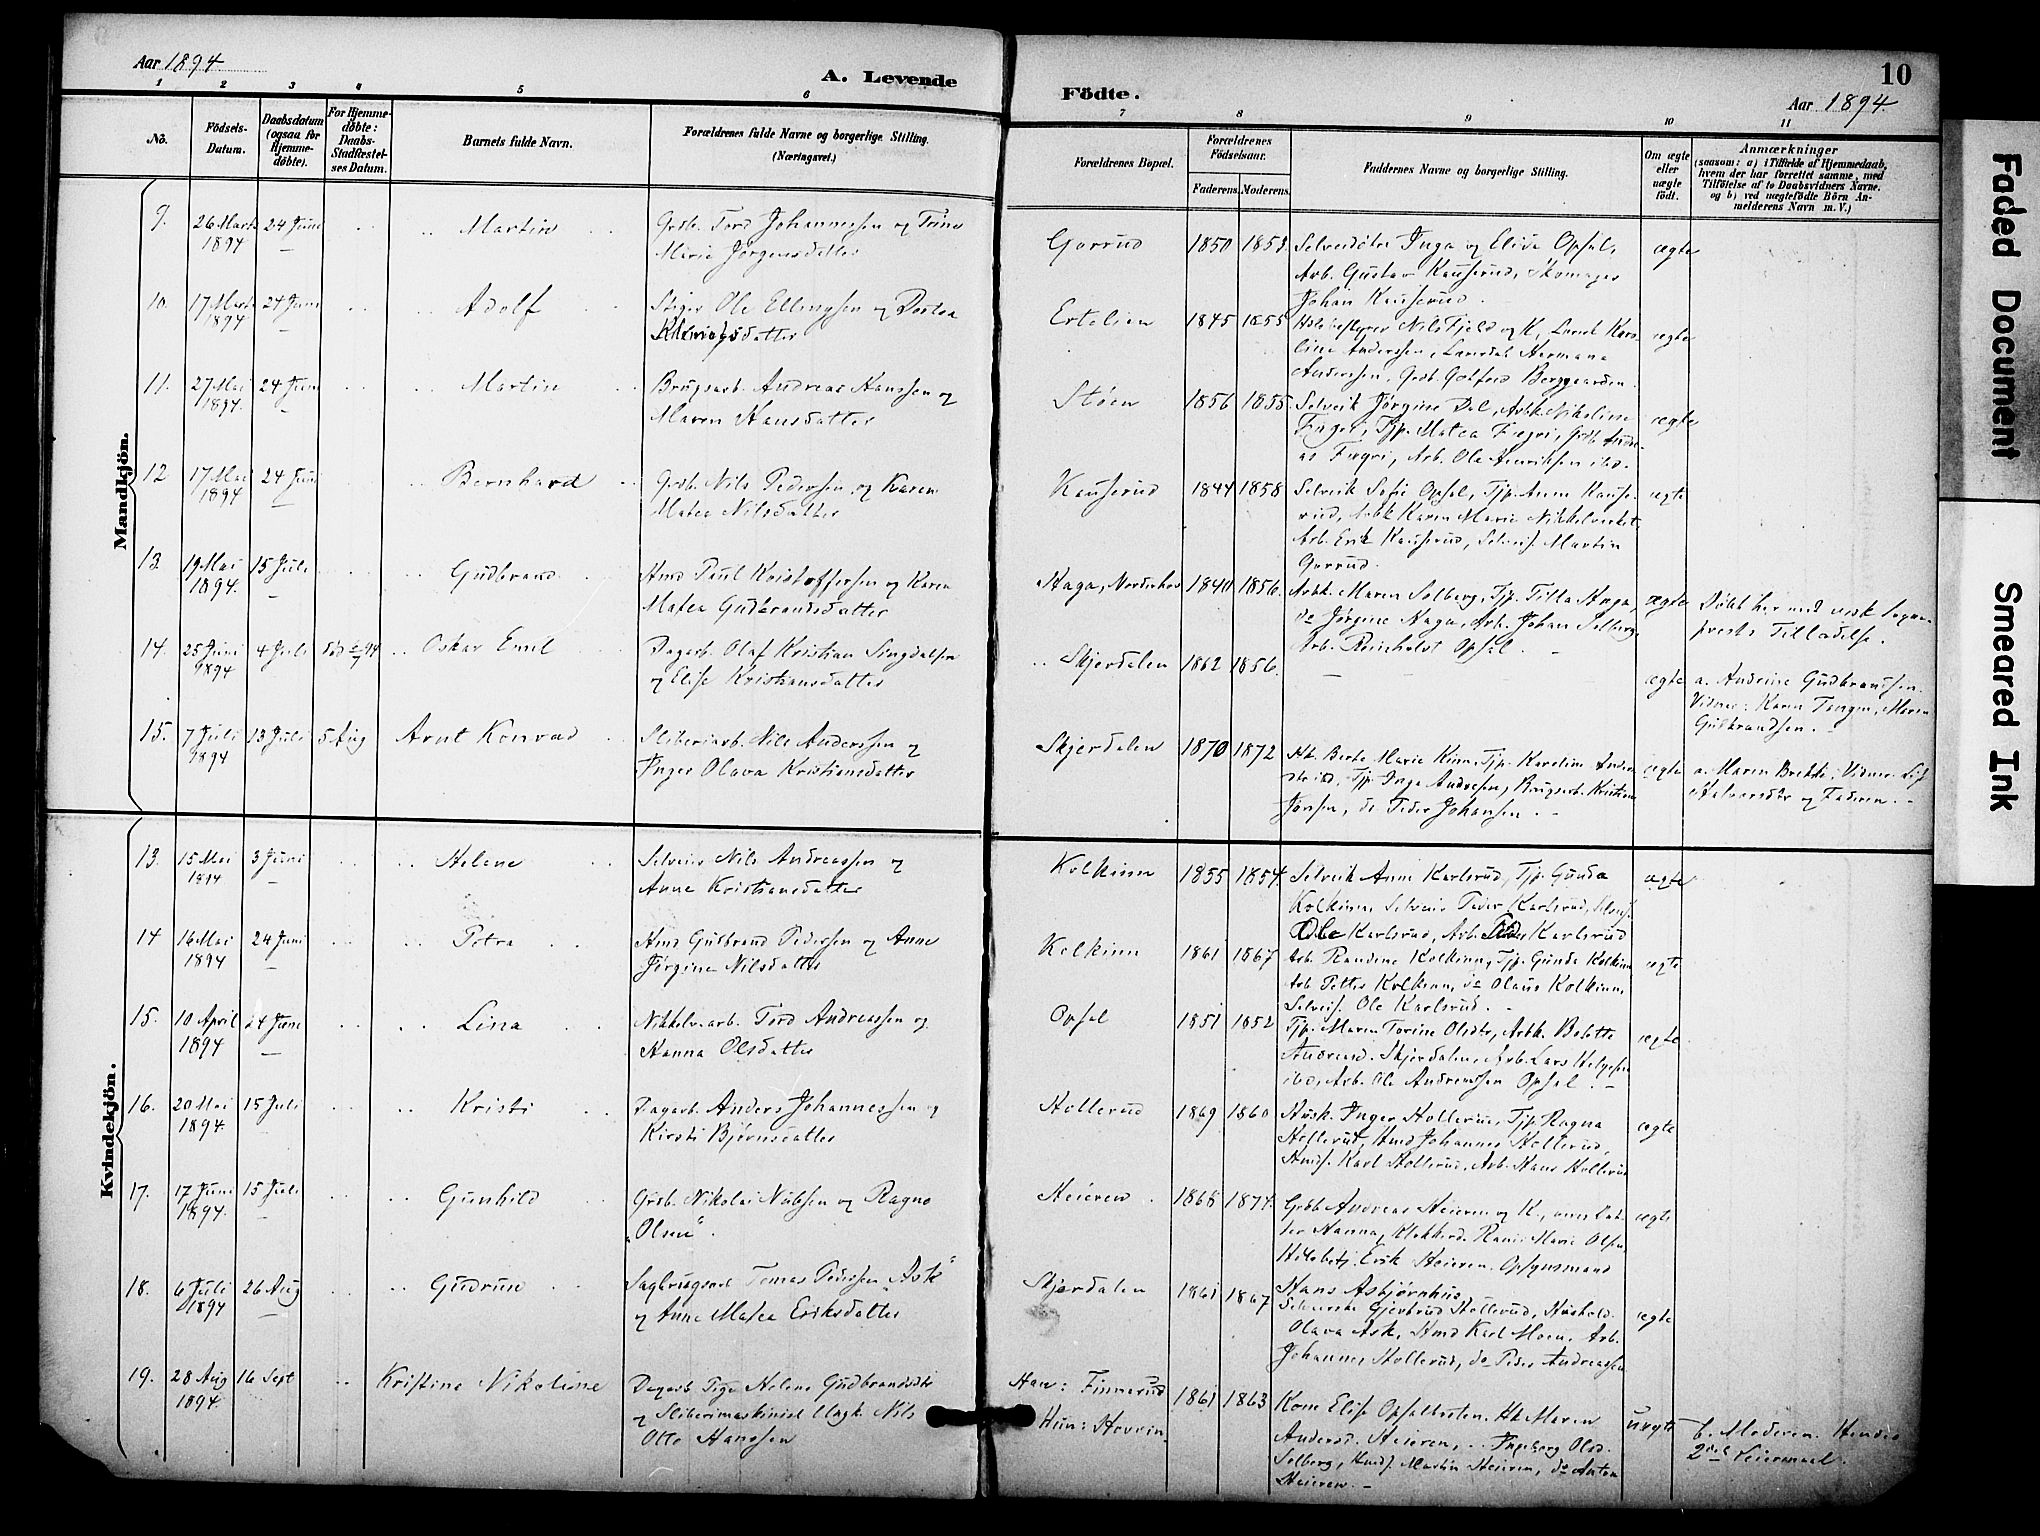 Aar 1894
A. Levende
Födte.
10
Aar 1894.
1 2 3 4 5 6 7 8 9 10 11
No.
Födsels-
Datum.
Daabsdatum
(ogsaa for
Hjemme-
döbte).
For Hjemme-
döbte:
Daabs-
Stadfæstel-
ses Datum.
Barnets fulde Navn.
Forældrenes fulde Navne og borgerlige Stilling.
(Næringsvei.)
Forældrenes Bopæl.
Forældrenes
Födselsaar.
Faderens.
Moderens.
Faddernes Navne og borgerlige Stilling.
Om ægte
eller
uægte
födt.
Anmærkninger
(saasom: a) i Tilfælde af Hjemmedaab,
hvem der har forrettet samme, med
Tilföielse af to Daabsvidners Navne.
og b) ved uægtefödte Börn An-
melderens Navn m. V.)
Mandkjön.
9. 26 Marts 24 Juni Martin Grdb. Tord Johannessen og Trine
1894 Marie Jørgensdatter
Gorrud 1850 1853. Inga og Elise Opsal, ægte
Arb. Gustav Kauserud, Skomager
Johan Kauserud.
10. 17 Marts 24 Juni Adolf Stiger Ole Ellingsen og Dortea
1894
Ertelien 1845 1855 Nils Fjeld og K, ægte
line Anderssen, Hermana
Anderssen, Grdb.
11. 27 Mai 24 Juni Martin Brugsarb. Andreas Hanssen og
1894. Maren Hansdatter
Støen 1856 1855. Jørgine Dal, Arbk. Nikoline ægte
Tjp. Matea Fægri, Grdb. Andre-
as Fægri, Arb. Ole Henriksen ibd.
12 17 Mai 24 Juni Bernhard Grdb. Nils Pedersen og Karen
1894 Matea Nilsdatter
Kauserud 1844 1858 Selveik Sofie Opsal, Tjp. Anne Kause- ægte
rud, Arbk Karen Marie Nikkelverket
Arb. Erik Kauserud, Martin
Gorrud.
13. 19 Mai 15 Juli Gudbrand Hmd Paul Kristoffersen og Karen
1894. Matea Gudbrandsdatter
Haga, Norderhov 1840 1856. Arbk. Maren Solberg, Tjp. Tilla Haga, ægte Døbt her med vedk Sogne-
do Jørgine Haga, Arb. Johan Solberg, prests Tilladelse.
Arb. Reinholdt Opsal.
14. 25 Juni 4 Juli Oskar Emil Dagarb. Olaf Kristian Singdalsen
1894 og Elise Kristiansdatter
Skjerdalen 1862 1856. ægte a. Andrine Gudbrandsen.
Vidner: Karen Tangen, Maren
Gudbrandsen.
15. 7 Juli 13 Juli 5 Aug Arnt Konrad Sliberiarb. Nils Anderssen og
1894 Inger Olava Kristiansdatter
Skjerdalen 1870 1872 Hk. Berte Marie Kinn, Tjp. Karoline Anders ægte a. Maren Brekke; Vidner:
Tjp. Inga Andresen, Brugsarb. Kristian Halvorsdtr og Faderen.
Jørsen, do Peder Johansen.
Kvindekjön.
13. 15 Mai 3 Juni Helene Selveier Nils Andreassen og
1894 Anne Kristiansdatter
Kolkinn 1855 1854. Selveik Anne Karlsrud, Tjp. Gunda ægte
Kolkinn, Selveier Peder Karlsrud,
Ole Karlsrud, Arb. Karlsrud
14 16 Mai 24 Juni Petra Hmd Gudbrand Pedersen og Anne
1894 Jørgine Nilsdatter
Kolkinn 1861 1867 Arb. Randine Kolkinn, Tjp. Gunda Kolkinn ægte
Arb Petter Kolkinn, do Olaus Kolkinn,
Selveis. Ole Karlsrud.
15. 10 April 24 Juni Lina Nikkelv.arb. Tord Andreassen og
1894 Hanna Olsdatter
Opsal 1851 1852 Tjp. Maren Torine Olsdtr, Arbk. Bolette ægte
Skjerdalen, Arb. Lars Helgesen
ibd, Arb. Ole Andreassen Opsal.
16. 20 Mai 15 Juli Kristi Dagarb. Anders Johannessen og
1894. Kirsti Bjørnsdatter
Hollerud 1869 1860 Husk. Inger Hollerud, Tjp. Ragna ægte
Hollerud, Hmd Johannes Hollerud,
Hmds. Karl Hollerud, Arb. Hans Hollerud
17. 17 Juni 15 Juli Gunhild Grdb. Nikolai Nubsen og Ragne
1894. "Olsen".
Heieren 1868 1874. Grdb Andreas Heieren og K.,
Hanna, Marie Olsen,
Erik Heieren. Opsynsmand
Hans Asbjørnhus.
18. 6 Juli 26 Aug Gudrun Sagbrugsarb Tomas Pedersen "Ask"
1894 og Anne Matea Eriksdatter
Skjerdalen 1861 1867 Gjertrud Hollerud, Hushold. ægte
Olava Ask, Hmd Karl Moen, Arb.
Johannes Hollerud, do Peder Andreassen
19. 28 Aug 16 Sept Kristine Nikoline Dagarb Pige Helene Gudbrandsdtr
1894. og Sliberimaskinist Ungk. Nils
Otto Hanssen
Han: Finnerud 1861 1863 Kone Elise Opsaltosten. Hk Maren uægte b. Moderen. Hendes
Hun: Hovrin. Heieren, Ingeborg Olsd. 2det Leiermaal.
Solberg, Hmds. Martin Heieren, do Anton
Heieren.
Faded Document
Smeared Ink